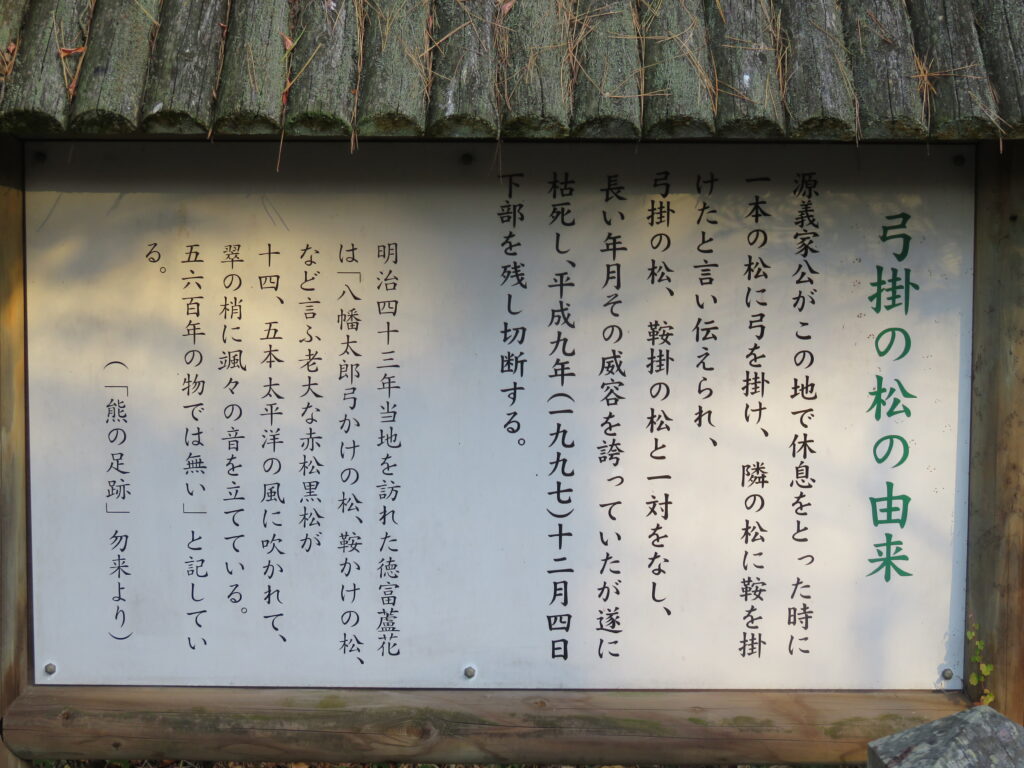 弓掛の松の由来
源義家公がこの地で休息をとった時に
一本の松に弓を掛け、隣の松に鞍を掛
けたと言い伝えられ、
弓掛の松、鞍掛の松と一対をなし、
長い年月その威容を誇っていたが遂に
枯死し、平成九年(一九九七)十二月四日
下部を残し切断する。
明治四十三年当地を訪れた徳富蘆花
は「八幡太郎弓かけの松、鞍かけの松、
など言ふ老大な赤松黒松が
十四、五本太平洋の風に吹かれて、
翠の梢に颯々の音を立てている。
五六百年の物では無い」と記してい
る。
(「熊の足跡」勿来より)